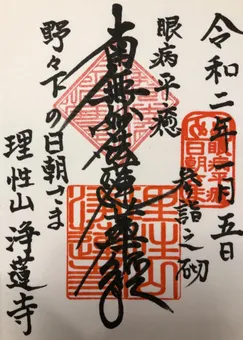 令和二年一月五日
眼病平癒
参詣之砌
南無妙法蓮華経
野々下の日朝さま
理性山 浄蓮寺